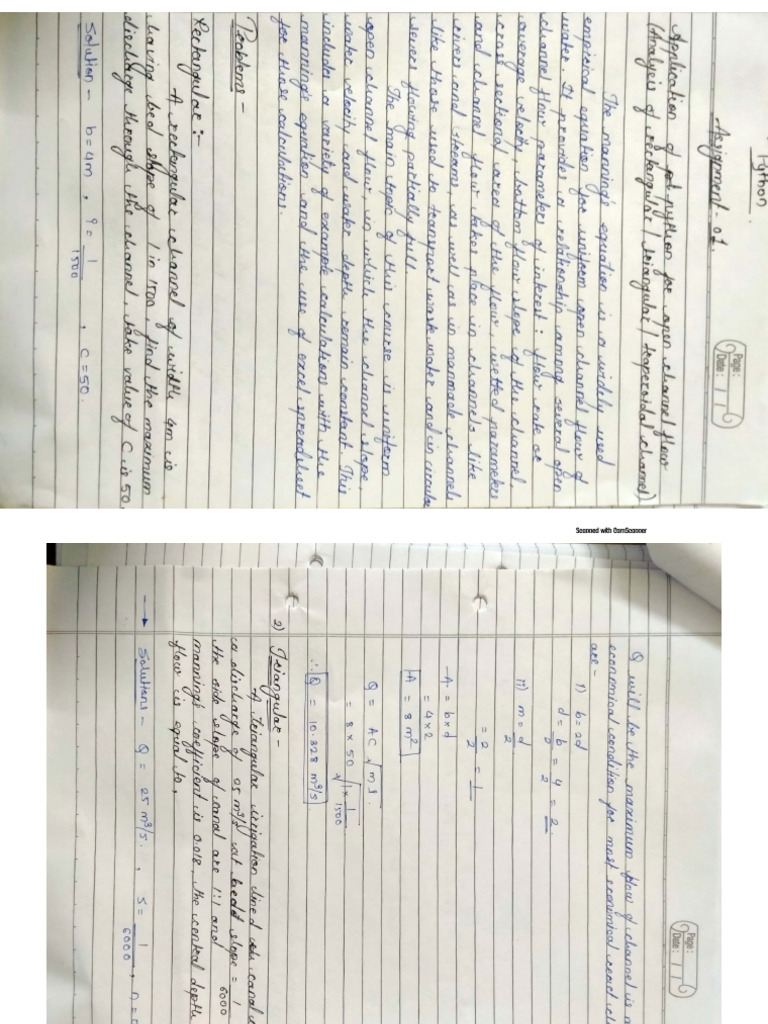 Python
Assignment - 01.
Page:
Date:
Application of python for open channel flow
(Analysis of rectangular / triangular / trapezoidal channel)
The manning's equation is a widely used
empirical equation for uniform open channel flow of
water. It provides a relationship among several open
channel flow parameters of interest: flow rate or
average velocity, bottom flow slope of the channel,
cross sectional area of the flow, wetted parameters
and channel flow takes place in channels like
rivers and streams, as well as in manmade channels
like those used to transport waste water and in circular
sewers flowing partially full.
The main topic of this course is uniform
open channel flow, in which the channel slope,
water velocity and water depth remain constant. This
includes a variety of example calculations with the
manning's equation and the use of excel spreadsheet
for those calculations.
Problems -
Rectangular :-
A rectangular channel of width 4m is
having bed slope of 1 in 1500, find the maximum
discharge through the channel, take value of C is 50.
Solution - b = 4m, i = 1/1500, C = 50.
Scanned with CamScanner
Page:
Date:
Q will be the maximum flow of channel is m
economical condition for most economical
are -
i) b = 2d
d = b/2 = 4/2 = 2.
ii) m = d/2
= 2/2 = 1
A = b x d
= 4 x 2
A = 8 m²
Q = AC √mi.
= 8 x 50 √1 x 1/1500
∴ Q = 10.328 m³/s
2) Triangular -
A triangular irrigation lined canal
a discharge of 25 m³/s at bedd slope = 1/6000
the side slope of canal are 1:1 and
manning's coefficient is 0.018, the central depth
flow is equal to,
→ Solutions - Q = 25 m³/s. , S = 1/6000, n =